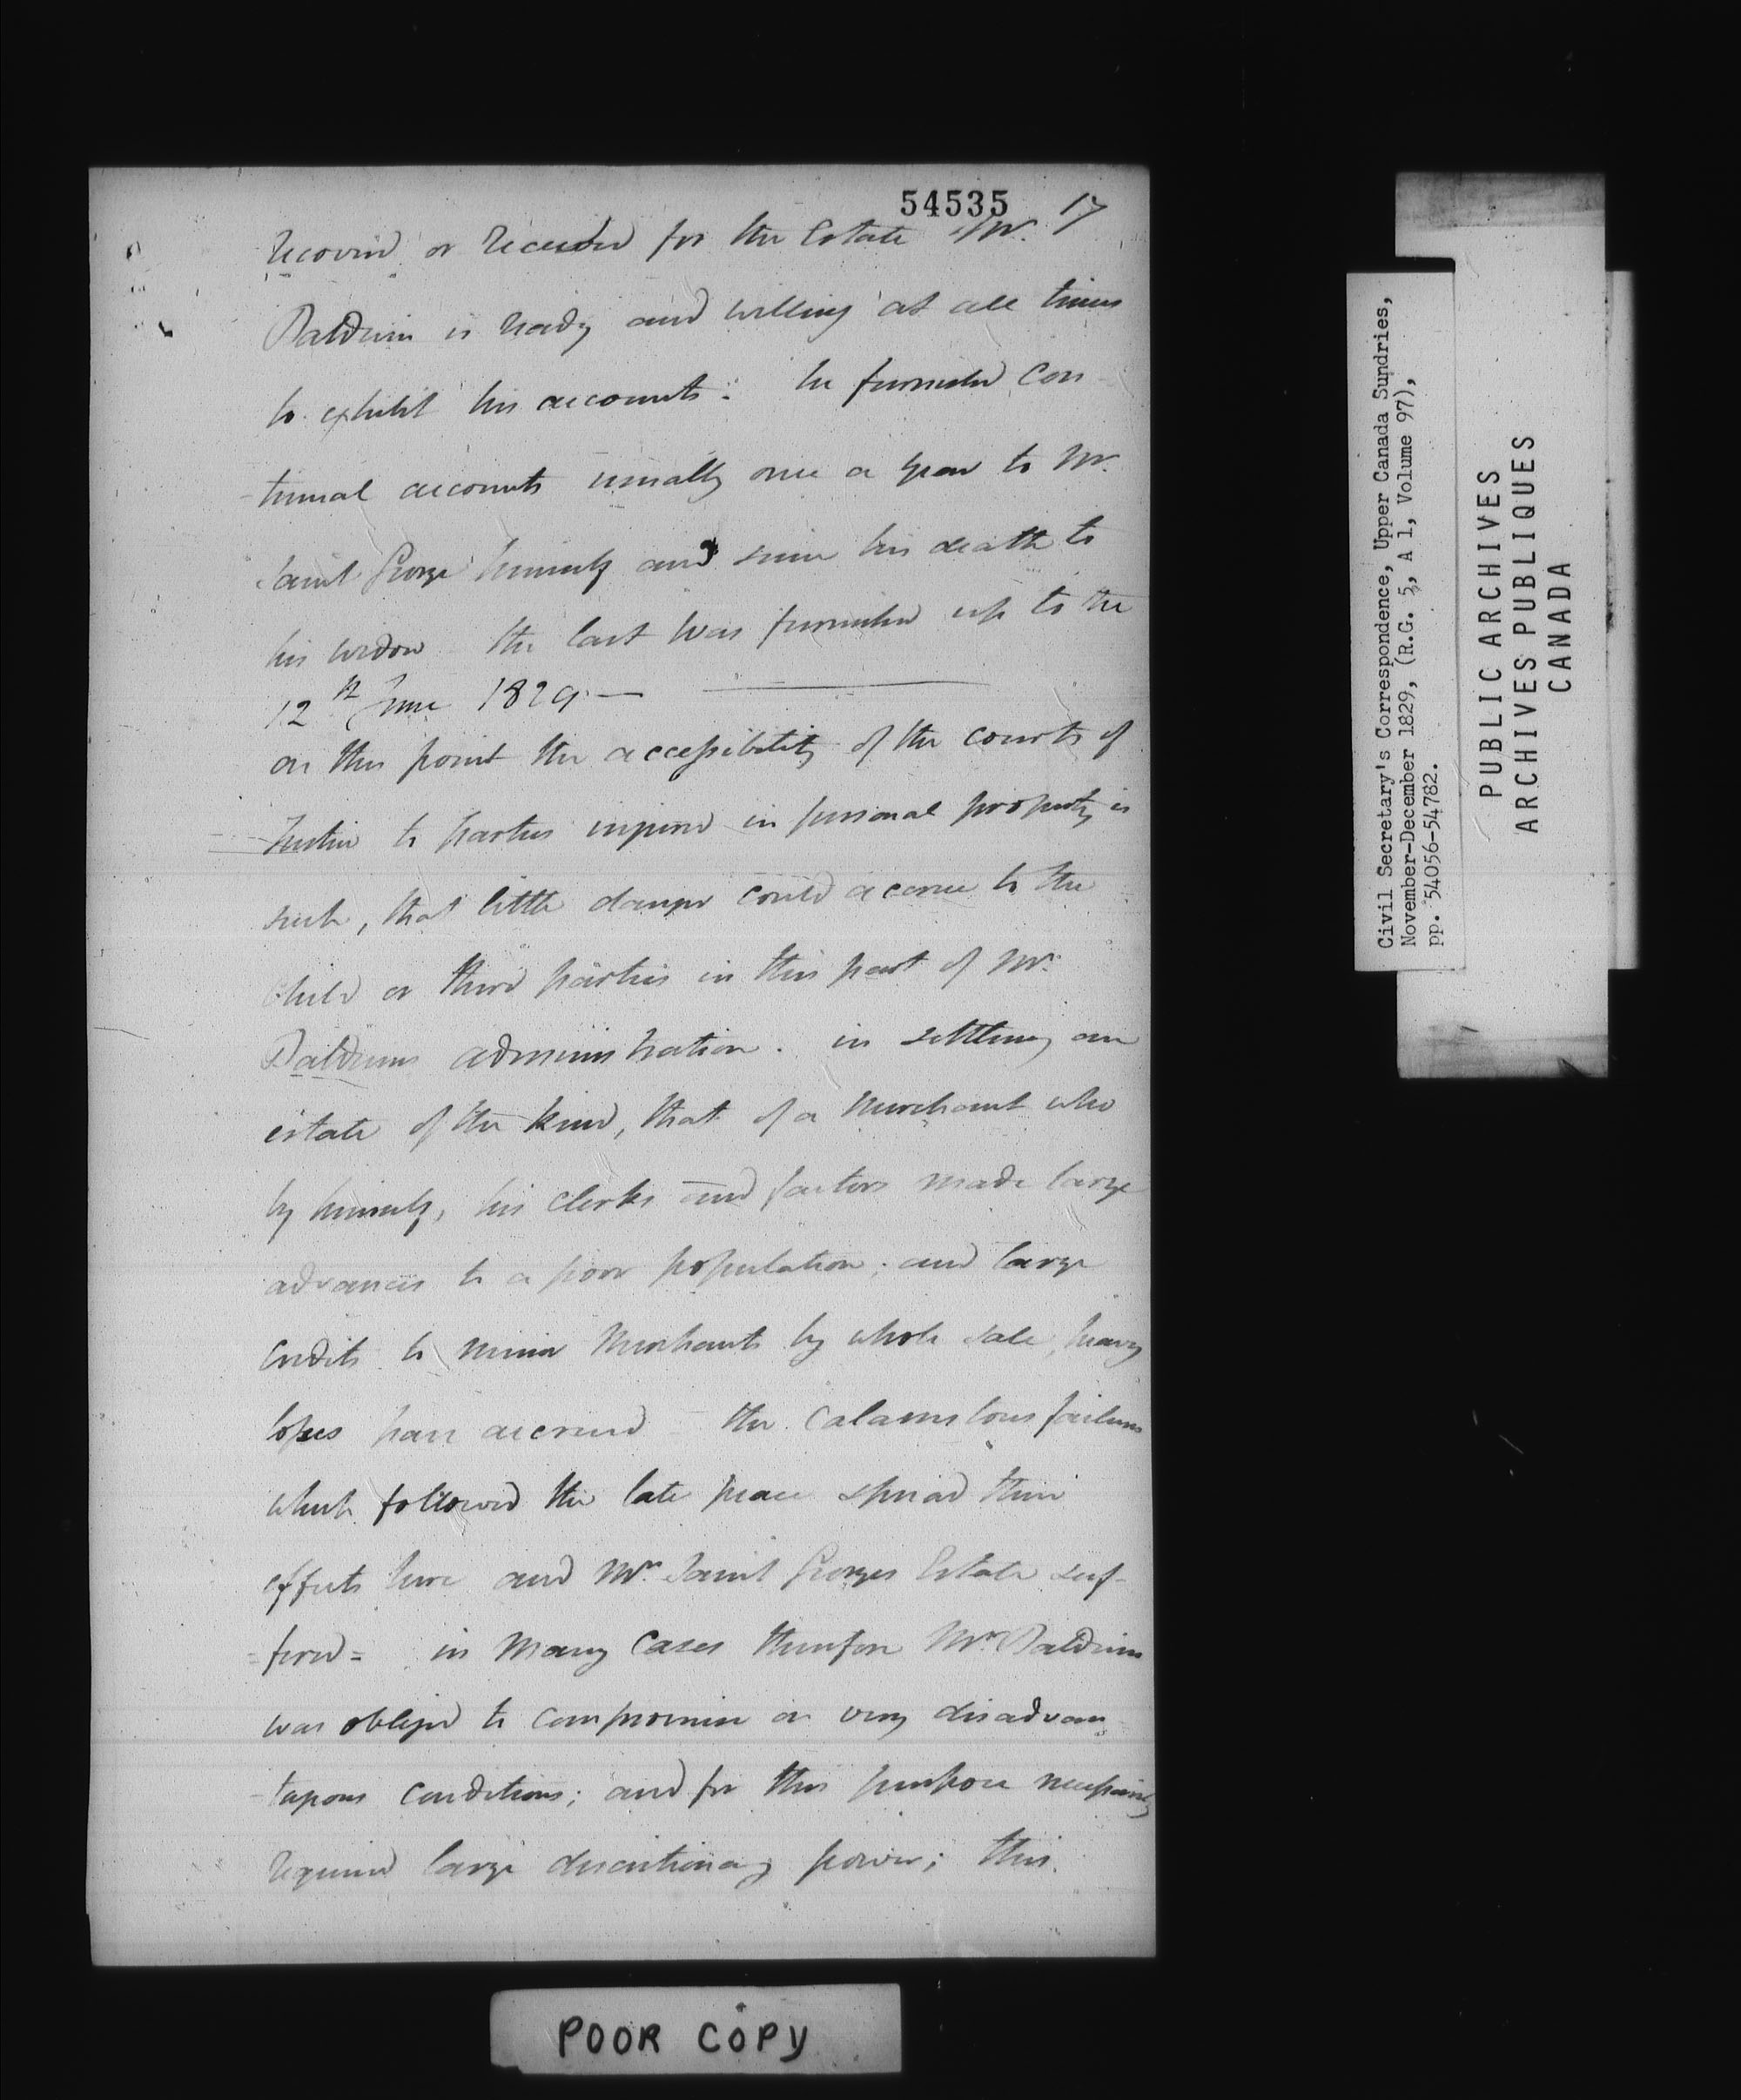 54535 17
recovered or received for the Estate. Mr.
Baldwin is ready and willing at all times
to exhibit his accounts: he furnished con-
-tinual accounts usually once a year to Mr.
Saint George himself and since his death to
his widow the last was furnished up to the
12th June 1829.—
on this point the accessibility of the courts of
Justice to parties injured in personal property is
such, that little danger could accrue to the
child or third parties in this part of Mr.
Baldwins administration. in settling an
estate of the kind, that of a Merchant who
by himself, his clerks and factors made large
advances to a poor population; and large
credits to minor Merchants by whole sale, heavy
losses have accrued - the calamitous failures
which followed the late peace spread their
effects here and Mr. Saint Georges Estate suf-
=fered= in many cases therefore Mr. Baldwin
was obliged to compromise on very disadvan-
-tageous conditions; and for this purpose necessarily
required large discretionary power; this
Civil Secretary's Correspondence, Upper Canada Sundries,
November-December 1829, (R.G. 5, A 1, Volume 97),
pp. 54056-54782.
PUBLIC ARCHIVES
ARCHIVES PUBLIQUES
CANADA
POOR COPY